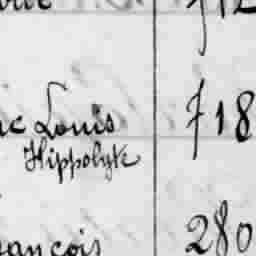 712
c Louis 718
Hippolyte
ançois 280